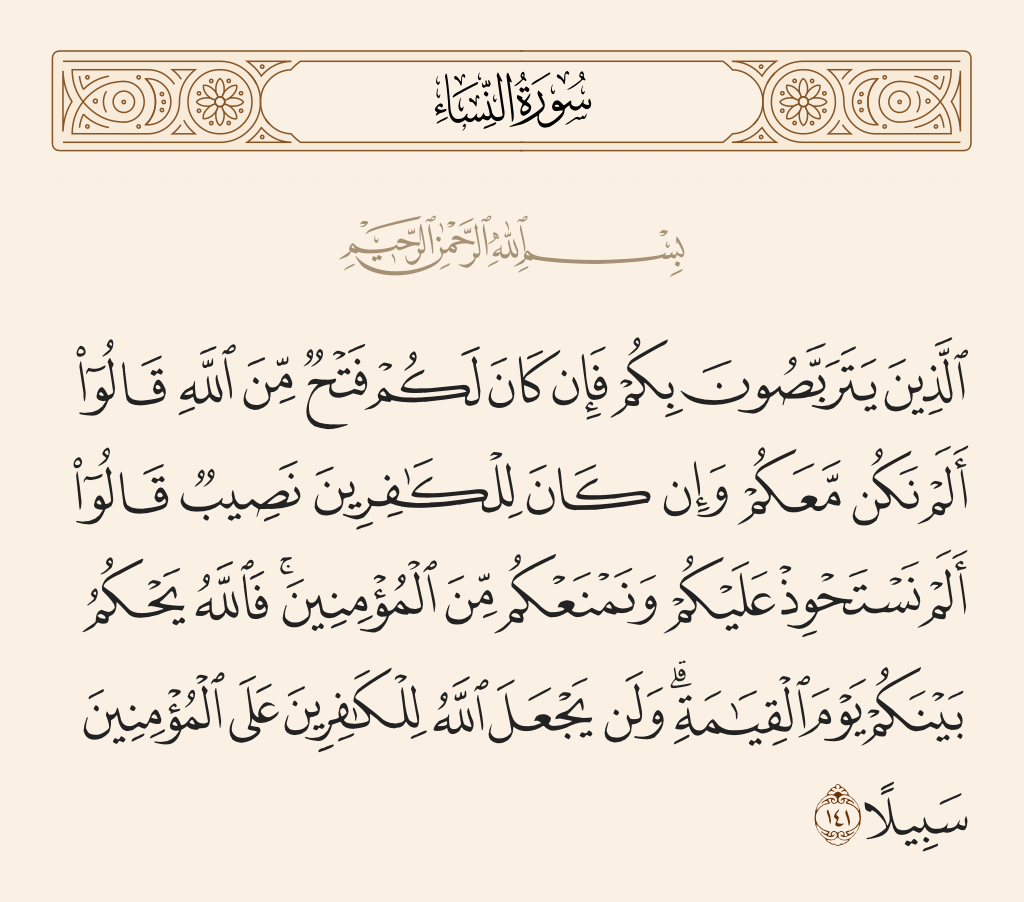 سُورَةُ النِّسَاءِ
بِسْمِ ٱللَّهِ ٱلرَّحْمَٰنِ ٱلرَّحِيمِ
ٱلَّذِينَ يَتَرَبَّصُونَ بِكُمْ فَإِن كَانَ لَكُمْ فَتْحٌ مِّنَ ٱللَّهِ قَالُوٓا۟
أَلَمْ نَكُن مَّعَكُمْ وَإِن كَانَ لِلْكَـٰفِرِينَ نَصِيبٌ قَالُوٓا۟
أَلَمْ نَسْتَحْوِذْ عَلَيْكُمْ وَنَمْنَعْكُم مِّنَ ٱلْمُؤْمِنِينَ ۚ فَٱللَّهُ يَحْكُمُ
بَيْنَكُمْ يَوْمَ ٱلْقِيَـٰمَةِ ۗ وَلَن يَجْعَلَ ٱللَّهُ لِلْكَـٰفِرِينَ عَلَى ٱلْمُؤْمِنِينَ
سَبِيلًا ١٤١